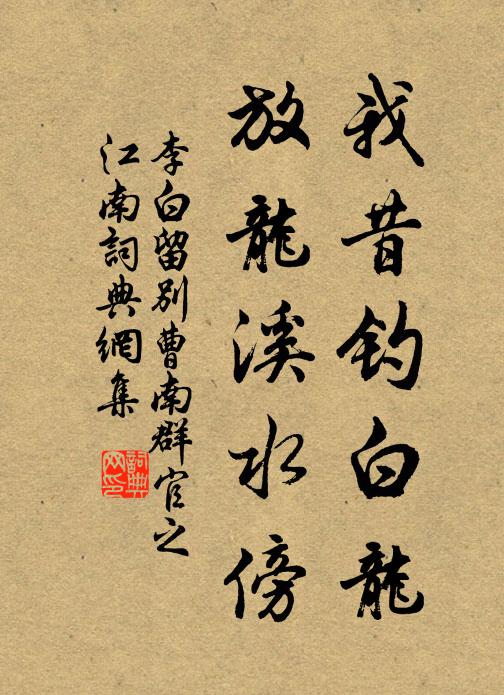 我昔钓白龍
放龍溪水傍
李白留别曹南群官之
江南詞典網集
詞典
网印